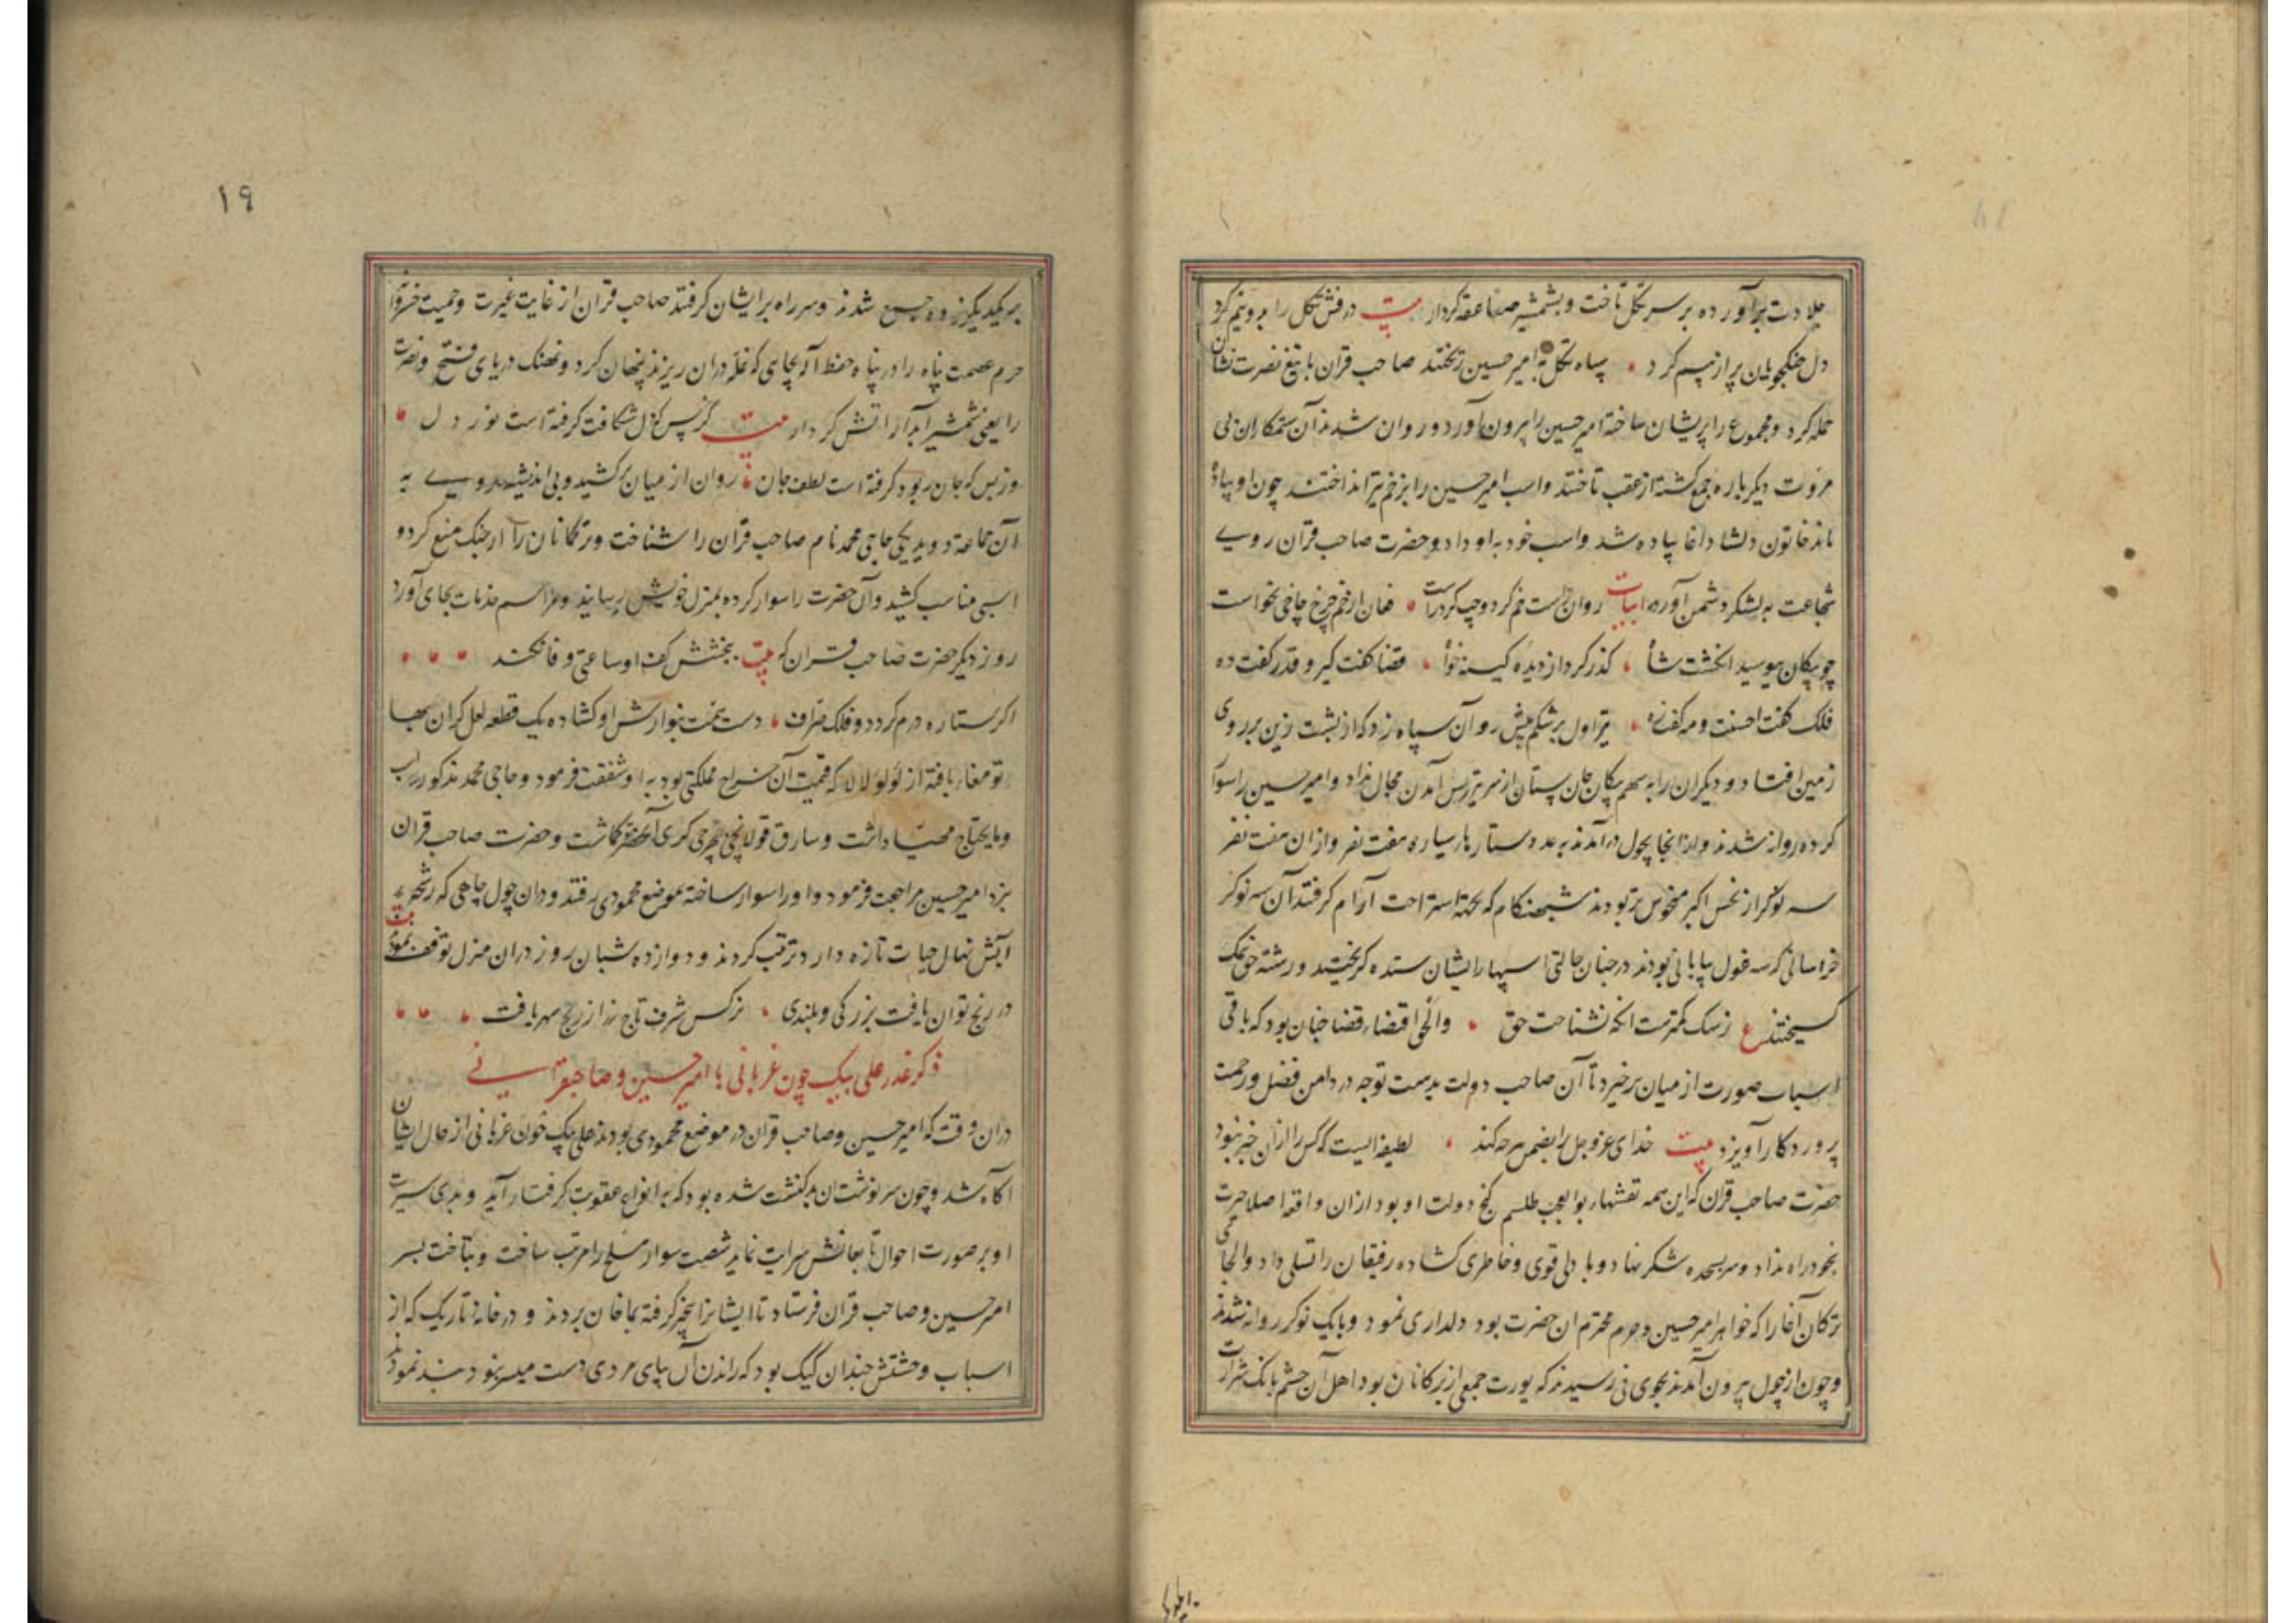 جلادت برآورده بر سر تکل تاخت و بشمشیر صاعقه کردار بیت درفش تکل را بدو نیم کرد
دل جنکجویان پر از بیم کرد سپاه تکل به امیر حسین ریختند صاحب قران با تیغ نصرت نشان
حمله کرد و مجموع را پریشان ساخته امیر حسین را بیرون آورد و روان شدند آن ستمکاران بی
مروت دیکر باره جمع کشته از عقب تاختند و اسب امیر حسین را بزخم تیر انداختند چون او پیاده
ماند خاتون دلشاد اغا پیاده شد و اسب خود به او داد و حضرت صاحب قران روی
شجاعت به لشکر دشمن آورده ابیات روان راست خم کرد و چپ کرد راست فغان از خم چرخ چاچی بخواست
چو پیکان ببوسید انکشت شاه کذر کرد از دیده کینه خواه قضا کفت کیر و قدر کفت ده
فلک کفت احسنت و مه کفت زه تیر اول بر شکم پیش رو آن سپاه زد که از پشت زین بر روی
زمین افتاد و دیکران را به سهم پیکان جان ستان از سر تیر پیش آمدن مجال نداد و امیر حسین را سوار
کرده روانه شدند و از انجا بچول درآمدند به عدد ستارهاء سیاره هفت نفر و از ان هفت نفر
سه نوکر از نحس اکبر منحوس تر بودند شبهنکام که بجهة استراحت آرام کرفتند آن سه نوکر
خراسانی که سه غول بیابانی بودند در چنان حالتی اسپها ایشان ستده کریختند و رشته حق نمک
کسیختند ع ز سک کمترست انکه نشناخت حق والحق اقتضاء قضا چنان بود که باقی
اسباب صورت از میان برخیزد تا آن صاحب دولت بدست توجه در دامن فضل و رحمت
پروردکار آویزد بیت خدای عز و جل را بضمن هر چه کند لطیفه ایست که کس را از ان خبر نبود
حضرت صاحب قران که این همه نقشهاء بوالعجب طلسم کنج دولت او بود از ان واقعه اصلا حیرت
بخود راه نداد و سر بسجده شکر نهاد و با دلی قوی و خاطری کشاده رفیقان را تسلی داد و الجای
ترکان آغا را که خواهر امیر حسین و حرم محترم ان حضرت بود دلداری نمود و با یک نوکر روانه شدند
و چون از چول بیرون آمدند بجوی نی رسیدند که یورت جمعی از ترکانان بود اهل آن حشم بانک شرارت
بر یکدیکر زده جمع شدند و سر راه بر ایشان کرفتند صاحب قران از غایت غیرت و حمیت خسروانه
حرم عصمت پناه را در پناه حفظ اله بچاهی که غله دران ریزند پنهان کرد و نهنک دریای فتح و نصرت
را یعنی شمشیر آبدار اتش کردار بیت کز پس کز دل شکافت کرفته است نور دل
وز بس که جان ربود کرفته است لطف جان روان از میان برکشید و بی اندیشه روی به
آن جماعة دوید یکی حاجی محمد نام صاحب قران را شناخت و ترکانان را از جنک منع کرد و
اسبی مناسب کشید و آن حضرت را سوار کرده بمنزل خویش رسانید و مراسم خدمات بجای آورد
روز دیکر حضرت صاحب قران که بیت بخشش کف او ساعتی وفا نکند
اکر ستاره درم کردد و فلک صراف دست همت بنوازش او کشاده یک قطعه لعل کران بها
تومغا بافته از لولوء لالا که قیمت آن خراج مملکتی بود به او شفقت فرمود و حاجی محمد مذکور اسب
و مایحتاج مهیا داشت و سارق قولانچی بهرجی کری آنحضرت کماشت و حضرت صاحب قران
نزد امیر حسین مراجعت فرمود و او را سوار ساخته بموضع محمودی رفتند و دران چول چاهی که رشحه
ابش نهال حیات تازه دارد ترتیب کردند و دوازده شبان روز دران منزل توقف نمود بیت
در رنج توان یافت بزرکی و بلندی نرکس شرف تاج زر از رنج سهر یافت
ذکر غدر علی بیک جون غربانی با امیر حسین و صاحبقرانی
دران وقت که امیر حسین و صاحب قران در موضع محمودی بودند علی بیک خون غربانی از حال ایشان
اکاه شد و چون سرنوشت ان بدکنشت شده بود که به انواع عقوبت کرفتار آید و بدی سیرت
او بر صورت احوال تابعانش سرایت نماید شصت سوار مسلح را مرتب ساخت و بتاخت بسر
امیر حسین و صاحب قران فرستاد تا ایشانرا بیخبر کرفته بماخان بردند و در خانه تاریک که از
اسباب وحشتش چندان کیک بود که راندن آن بپای مردی دست میسر نبود بند نمودند
۱۹